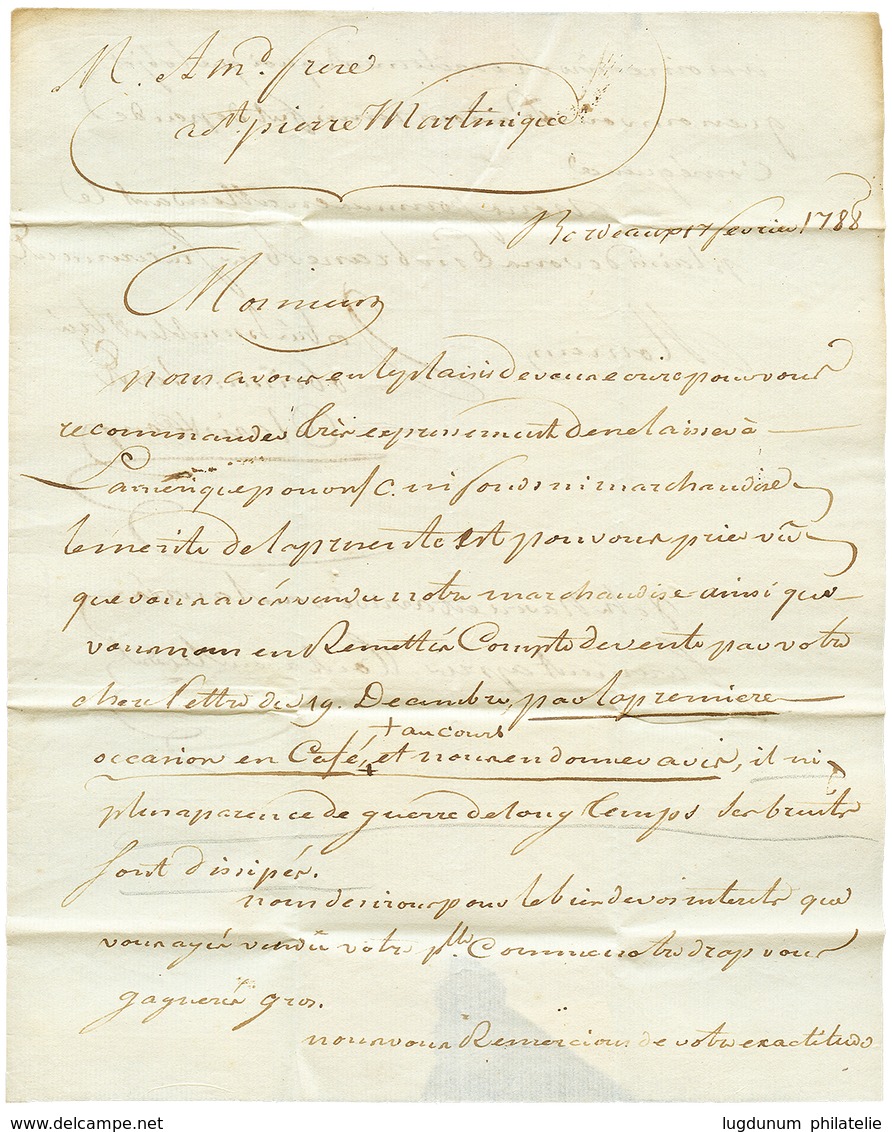 M. Amd. frere
a St. pierre Martinique
Bordeaux 17 fevrier 1788
Monsieur
nous avons eu le plaisir de vous ecrire pour vous
recommander très expressement de ne laisser à
L'amérique pour n/ C. ni fonds ni marchandise
le merite de la presente est pour vous prier
que vous avés vendu notre marchandise ainsi que
vous nous en Remettés Compte de vente par votre
chere lettre du 19. Decembre, par la premiere
occasion en Café, et nous en donner avis, il ni
+ au cours
plus aparence de guerre de long temps les bruits
sont dissipés.
nous desirons pour le bien de vos interets que
vous ayés vendu votre plle. Comme notre drap vous
gagnerés gros.
nous vous Remercions de votre exactitude
lugdunum philatelie